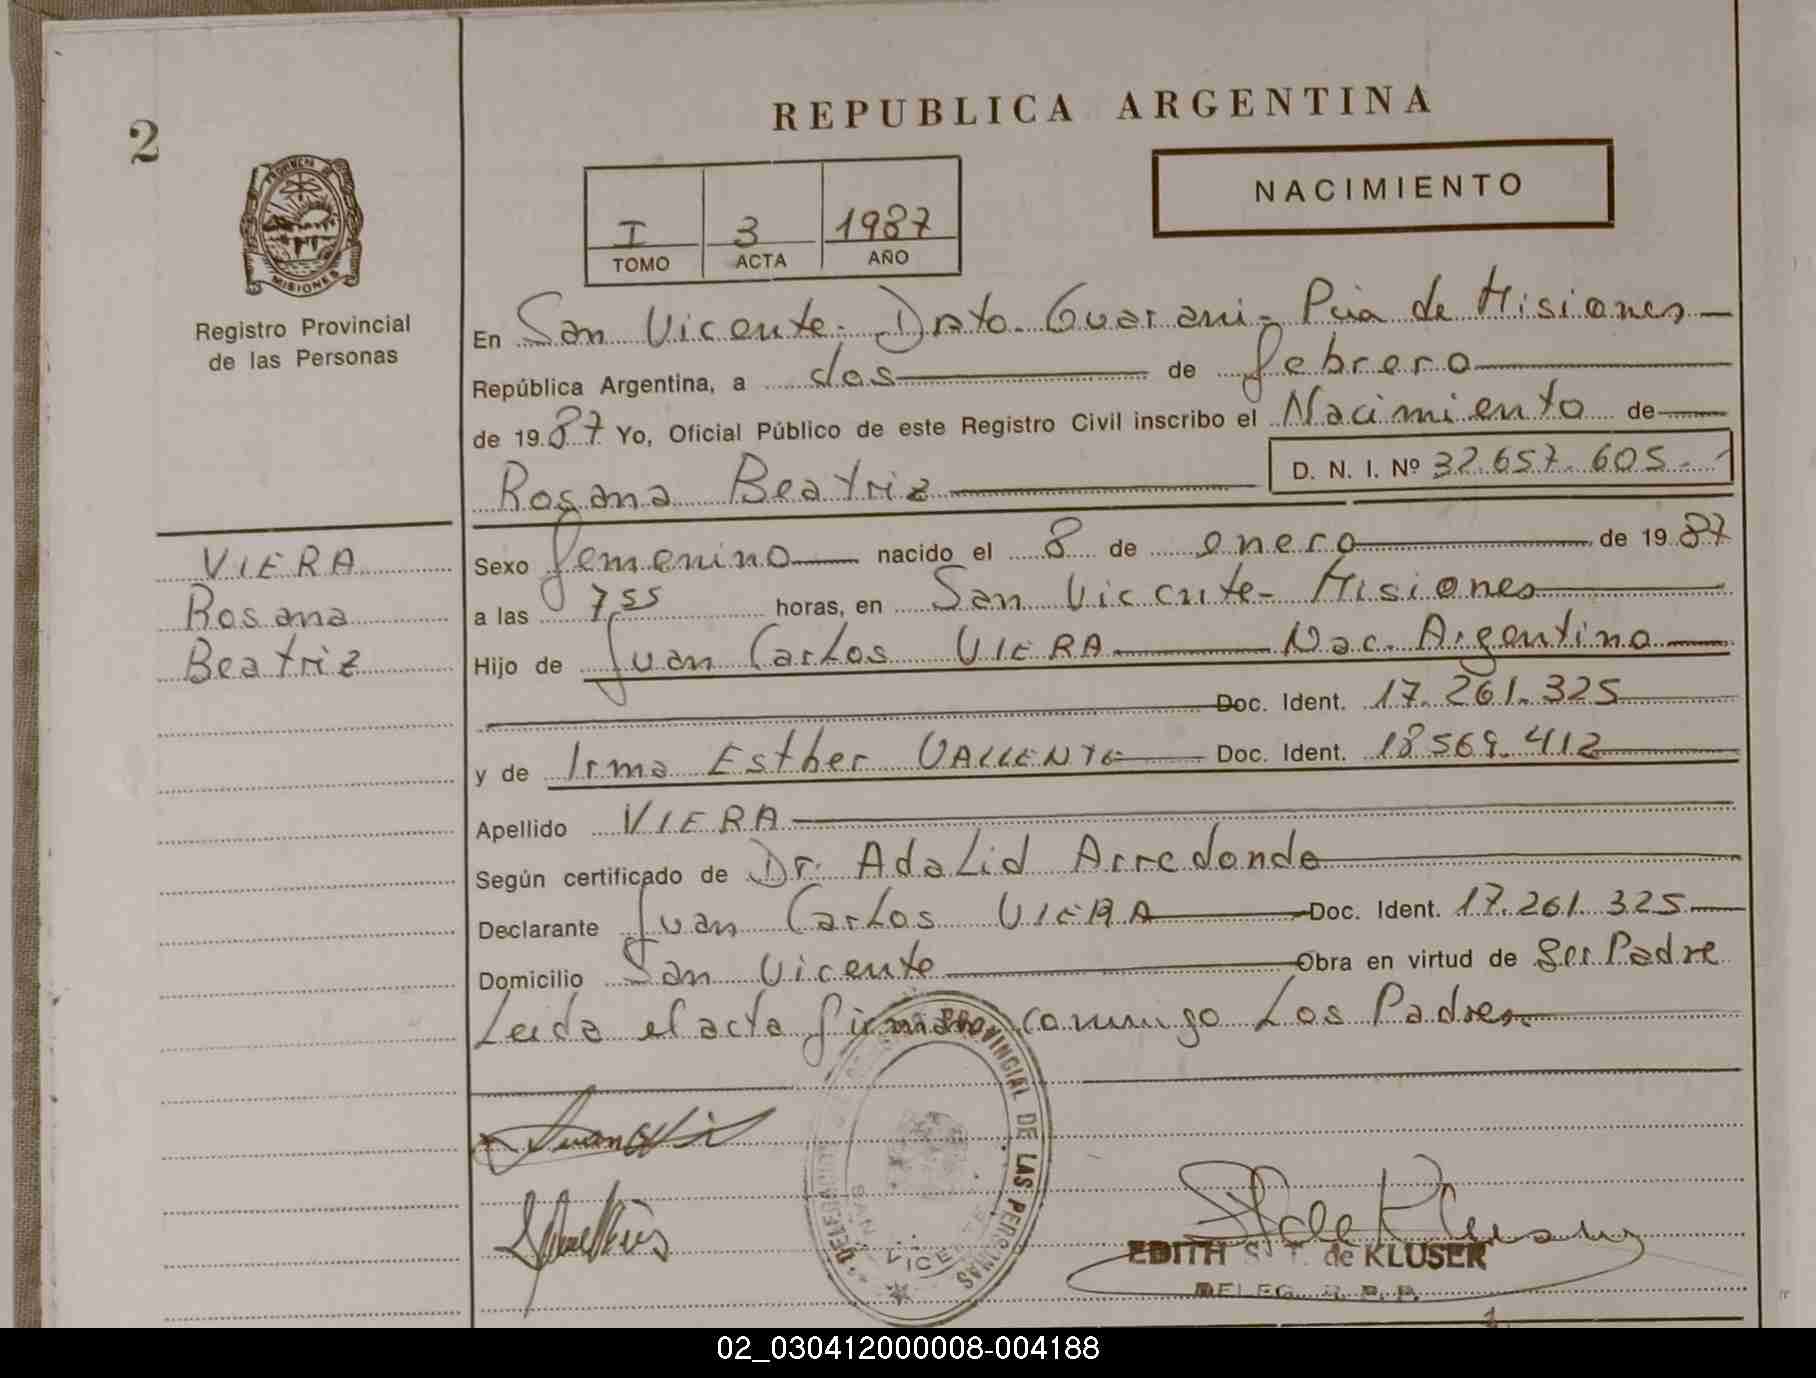 2
REPUBLICA ARGENTINA
NACIMIENTO
I 3 1987
TOMO ACTA AÑO
PROVINCIA DE
MISIONES
Registro Provincial
de las Personas
En San Vicente - Dpto. Guarani - Pcia de Misiones
República Argentina, a dos de febrero
de 1987 Yo, Oficial Público de este Registro Civil inscribo el Nacimiento de
D. N. I. Nº 32.657.605
Rosana Beatriz
VIERA
Rosana
Beatriz
Sexo femenino nacido el 8 de enero de 1987
a las 7,55 horas, en San Vicente - Misiones
Hijo de Juan Carlos VIERA Nac. Argentino
Doc. Ident. 17.261.325
y de Irma Esther VALLENTE Doc. Ident. 18569.412
Apellido VIERA
Según certificado de Dr. Adalid Arredondo
Declarante Juan Carlos VIERA Doc. Ident. 17.261.325
Domicilio San Vicente Obra en virtud de Ser Padre
Leida el acta firman conmigo Los Padres
PROVINCIAL DE LAS PERSONAS
SAN VICENTE
EDITH S. T. de KLUSER
DELEG. R. P. P.
02_030412000008-004188